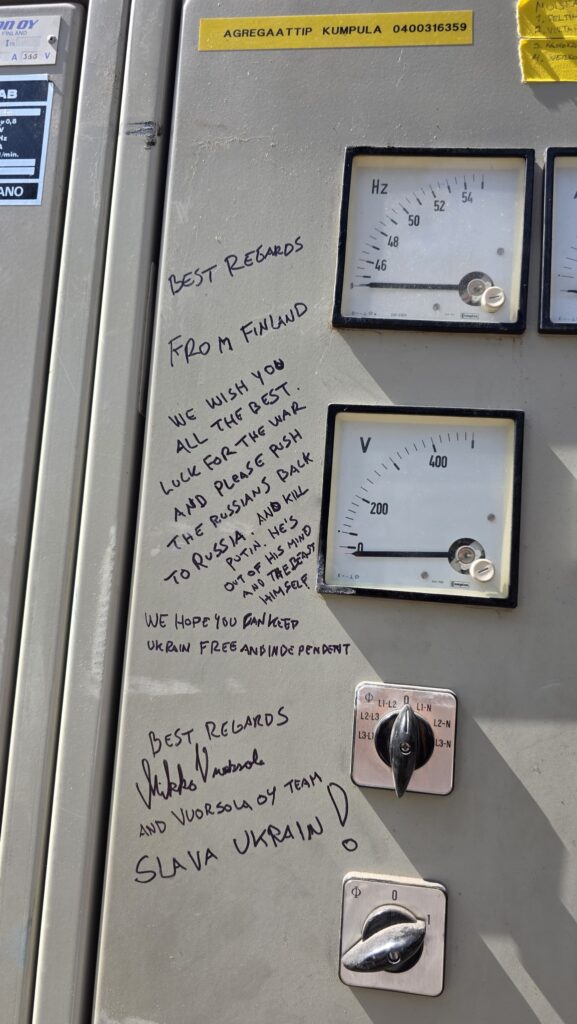 OY
FINLAND
A 360 V
AB
AGREGAATTIP KUMPULA 0400316359
Hz
46
48
50
52
54
BEST REGARDS
FROM FINLAND
WE WISH YOU
ALL THE BEST.
LUCK FOR THE WAR
AND PLEASE PUSH
THE RUSSIANS BACK
TO RUSSIA. AND KILL
PUTIN. HE'S
OUT OF HIS MIND
AND THE BEAST
HIMSELF
V
0
200
400
WE HOPE YOU CAN KEEP
UKRAIN FREE AND INDEPENDENT
BEST REGARDS
Mikko Vuorsola
AND VUORSOLA OY TEAM
SLAVA UKRAIN!
0
L1-L2
L1-N
L2-L3
L2-N
L3-L1
L3-N
0
1